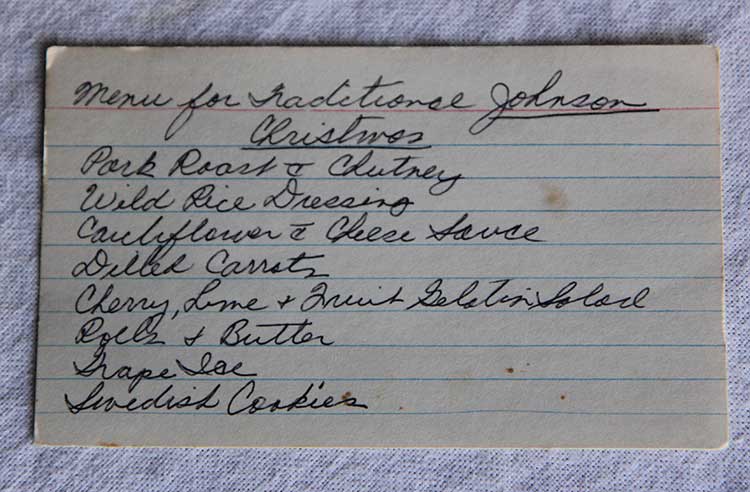 Menu for Traditional Johnson
Christmas
Pork Roast c̄ Chutney
Wild Rice Dressing
Cauliflower c̄ Cheese Sauce
Dilled Carrots
Cherry, Lime + Fruit Gelatin Salad
Rolls & Butter
Grape Ice
Swedish Cookies